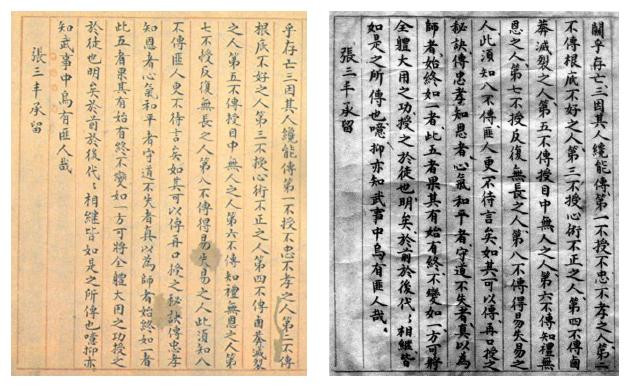 乎存亡三因其人纔能傳第一不授不忠不孝之人第二不傳
根底不好之人第三不授心術不正之人第四不傳鹵莽滅裂
之人第五不傳授目中無人之人第六不傳知禮無恩之人第
七不授反復無長之人第八不傳得易失易之人此須知八
不傳匪人更不待言矣如其可以傳再口授之秘訣傳忠孝
知恩者心氣和平者守道不失者真以為師者始終如一者
此五者果其有始有終不變如一方可將全體大用之功授之
於徒也明矣於前於後代〻相繼皆如是之所傳也噫抑亦
知武事中烏有匪人哉
張三丰承留
關乎存亡三因其人纔能傳第一不授不忠不孝之人第二
不傳根底不好之人第三不授心術不正之人第四不傳鹵
莽滅裂之人第五不傳授目中無人之人第六不傳知禮無
恩之人第七不授反復無長之人第八不傳得易失易之
人此須知八不傳匪人更不待言矣如其可以傳再口授之
秘訣傳忠孝知恩者心氣和平者守道不失者真以為
師者始終如一者此五者果其有始有終不變如一方可將
全體大用之功授之於徒也明矣於前於後代〻相繼皆
如是之所傳也噫抑亦知武事中烏有匪人哉。
張三丰承留